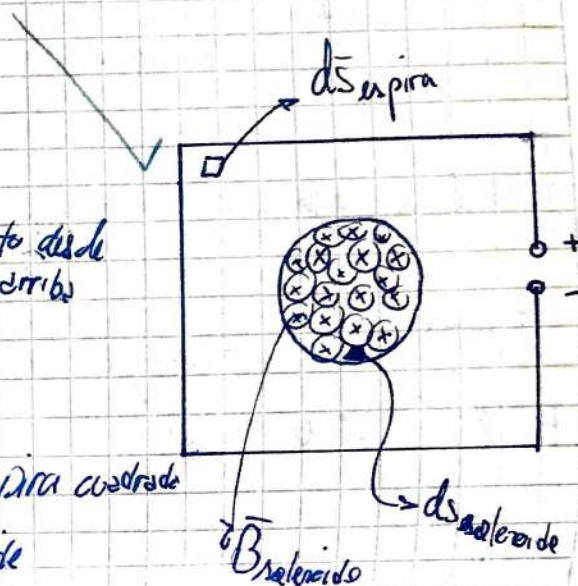 ds̄ espira
to desde
arriba
+
-
pira cuadrada
ds solenoide
de
B̄ solenoide